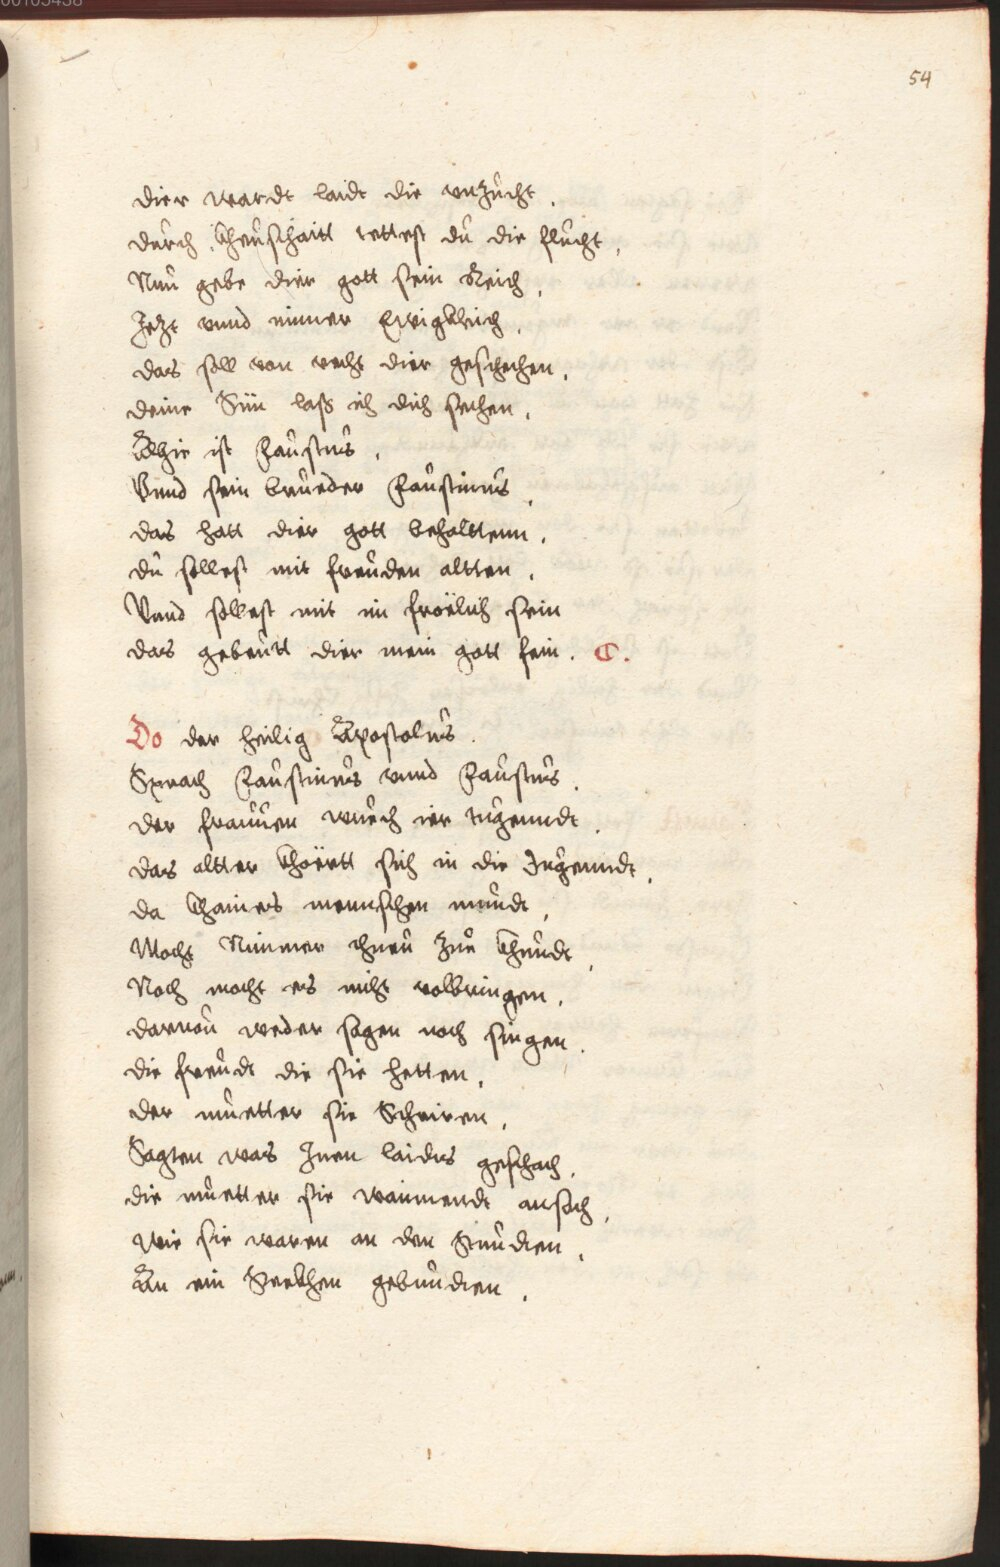 00103438
54
dier wardt laidt die vnzücht.
dürch kheüschaitt tettest dü die flücht,
Nün gebe dier gott sein Reich,
Jetzt vnnd nimer Ewigkleich,
das soll von recht dier geschechen,
deine Sün lasß ich dich sechen,
Alhie ist Faüstus,
Vnnd sein brueder Faüstinus,
das hatt dier gott behalttenn,
dü sollest mit freüden altten,
Vnnd sollest mit in frölich sein
das gebeütt dier mein gott fein. C.
Do der heilig Apostolus.
Sprach Faüstinus vnnd Faüstus,
der fraüen wüech ier tugenndt,
das altter khoërtt sich in die Jugenndt,
da khaines mennschen mündt,
Mocht Nimmer eüch zue khündt,
Noch mocht es nicht volbringen,
daruon weder sagen noch singen.
die freüdt die sie hetten,
der müetter sie Schriren,
Sagten was Jnen laidts geschach,
die müetter sie wainnendt ansach,
wie sie waren an den Stündten,
An ein Steckhen gebündten,